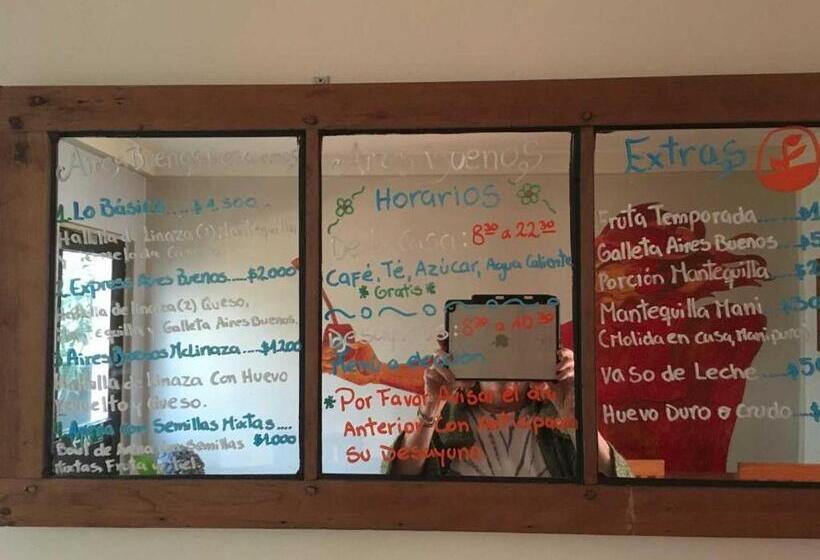 Aires Buenos
1. Lo Básico.....$1.500
Hallulla de Linaza (2), Mantequilla
Express Aires Buenos.....$2.000
de linaza(2) Queso,
y Galleta Aires Buenos.
Aires Buenos McLinaza.....$1.200
Hallulla de Linaza Con Huevo
Revuelto y Queso.
con Semillas Mixtas....
$1.000
Semillas
Mixtas, Fruta y Miel.
Aires Buenos
Horarios
De la Casa: 8³⁰ a 22³⁰
Café, Té, Azúcar, Agua Caliente
*Gratis*
Desayunos: 8³⁰ a 10³⁰
Menú a elección
*Por Favor Avisar el día
Anterior Con Anticipación
Su Desayuno
Extras
Fruta Temporada
Galleta Aires Buenos
Porción Mantequilla
Mantequilla Maní
(Molida en casa, Maní puro)
Vaso de Leche
Huevo Duro o Crudo